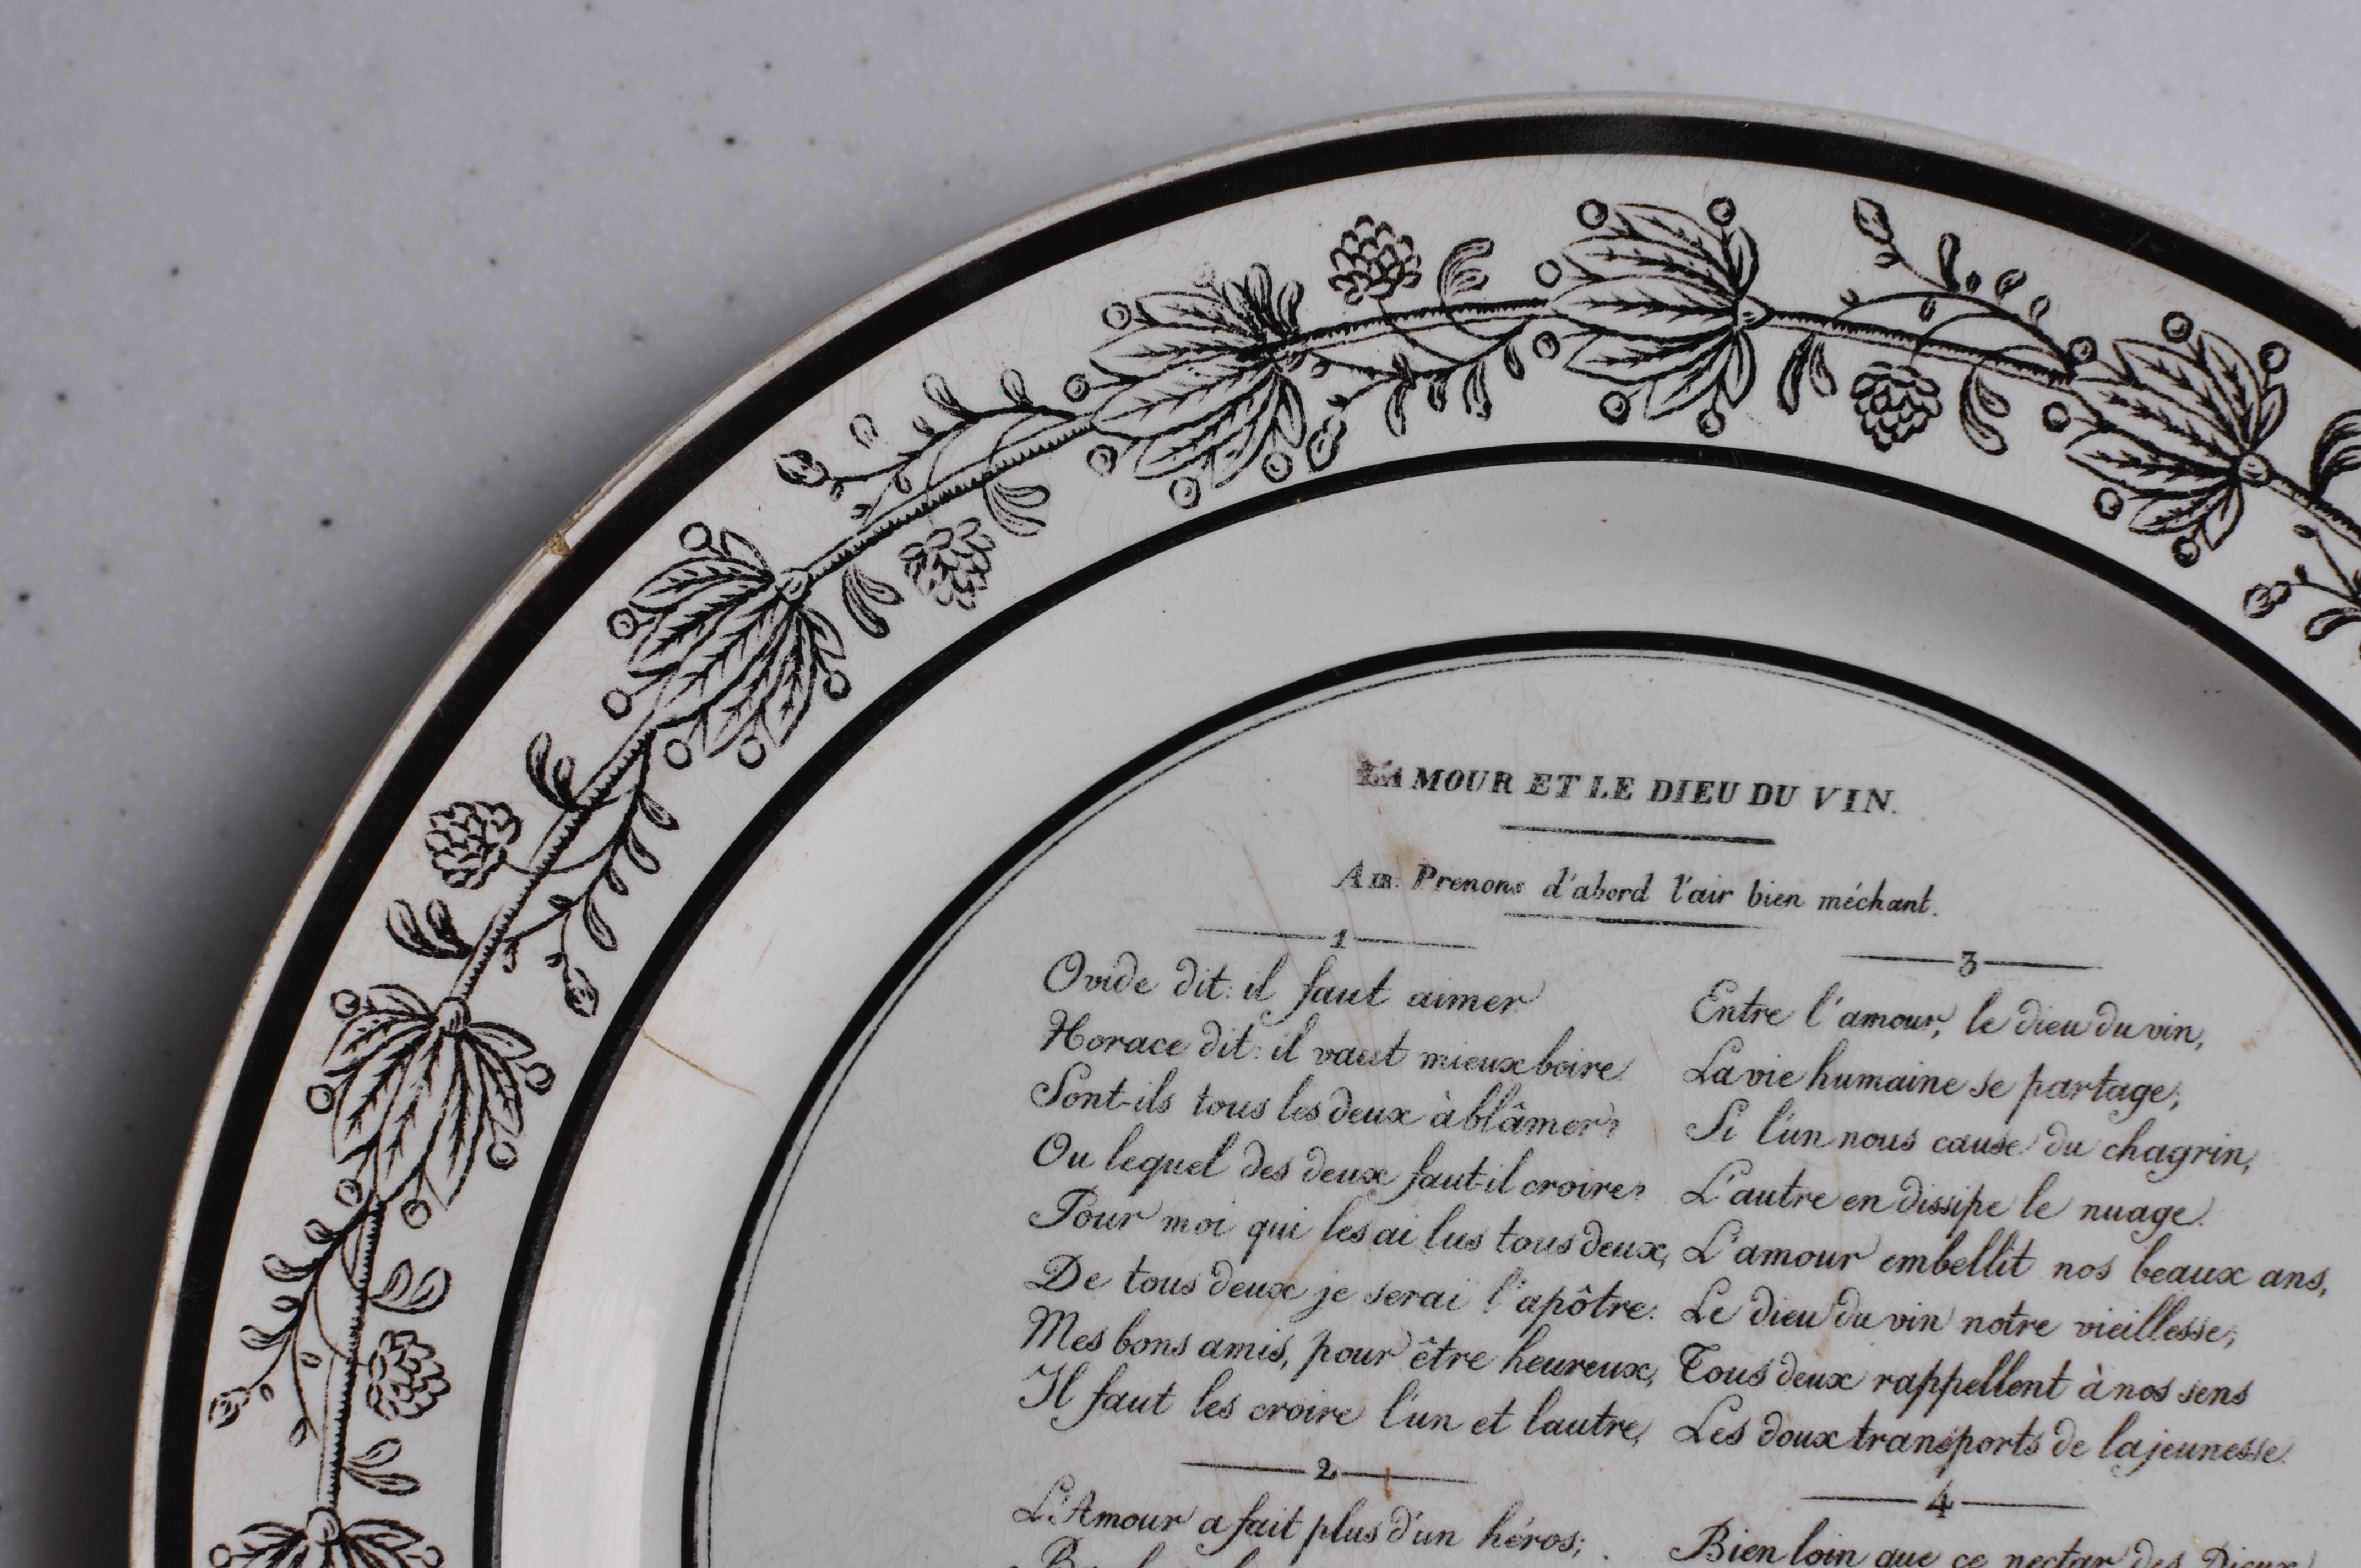 L'AMOUR ET LE DIEU DU VIN.
AIR: Prenons d'abord l'air bien méchant.
1
Ovide dit: il faut aimer
Horace dit: il vaut mieux boire
Sont-ils tous les deux à blâmer?
Ou lequel des deux faut-il croire?
Pour moi qui les ai lus tous deux,
De tous deux je serai l'apôtre:
Mes bons amis, pour être heureux,
Il faut les croire l'un et lautre,
2
L'Amour a fait plus d'un héros;
3
Entre l'amour, le dieu du vin,
La vie humaine se partage;
Si l'un nous cause du chagrin,
L'autre en dissipe le nuage.
L'amour embellit nos beaux ans,
Le dieu du vin notre vieillesse;
Tous deux rappellent à nos sens
Les doux transports de la jeunesse.
4
Bien loin que ce nectar des Dieux